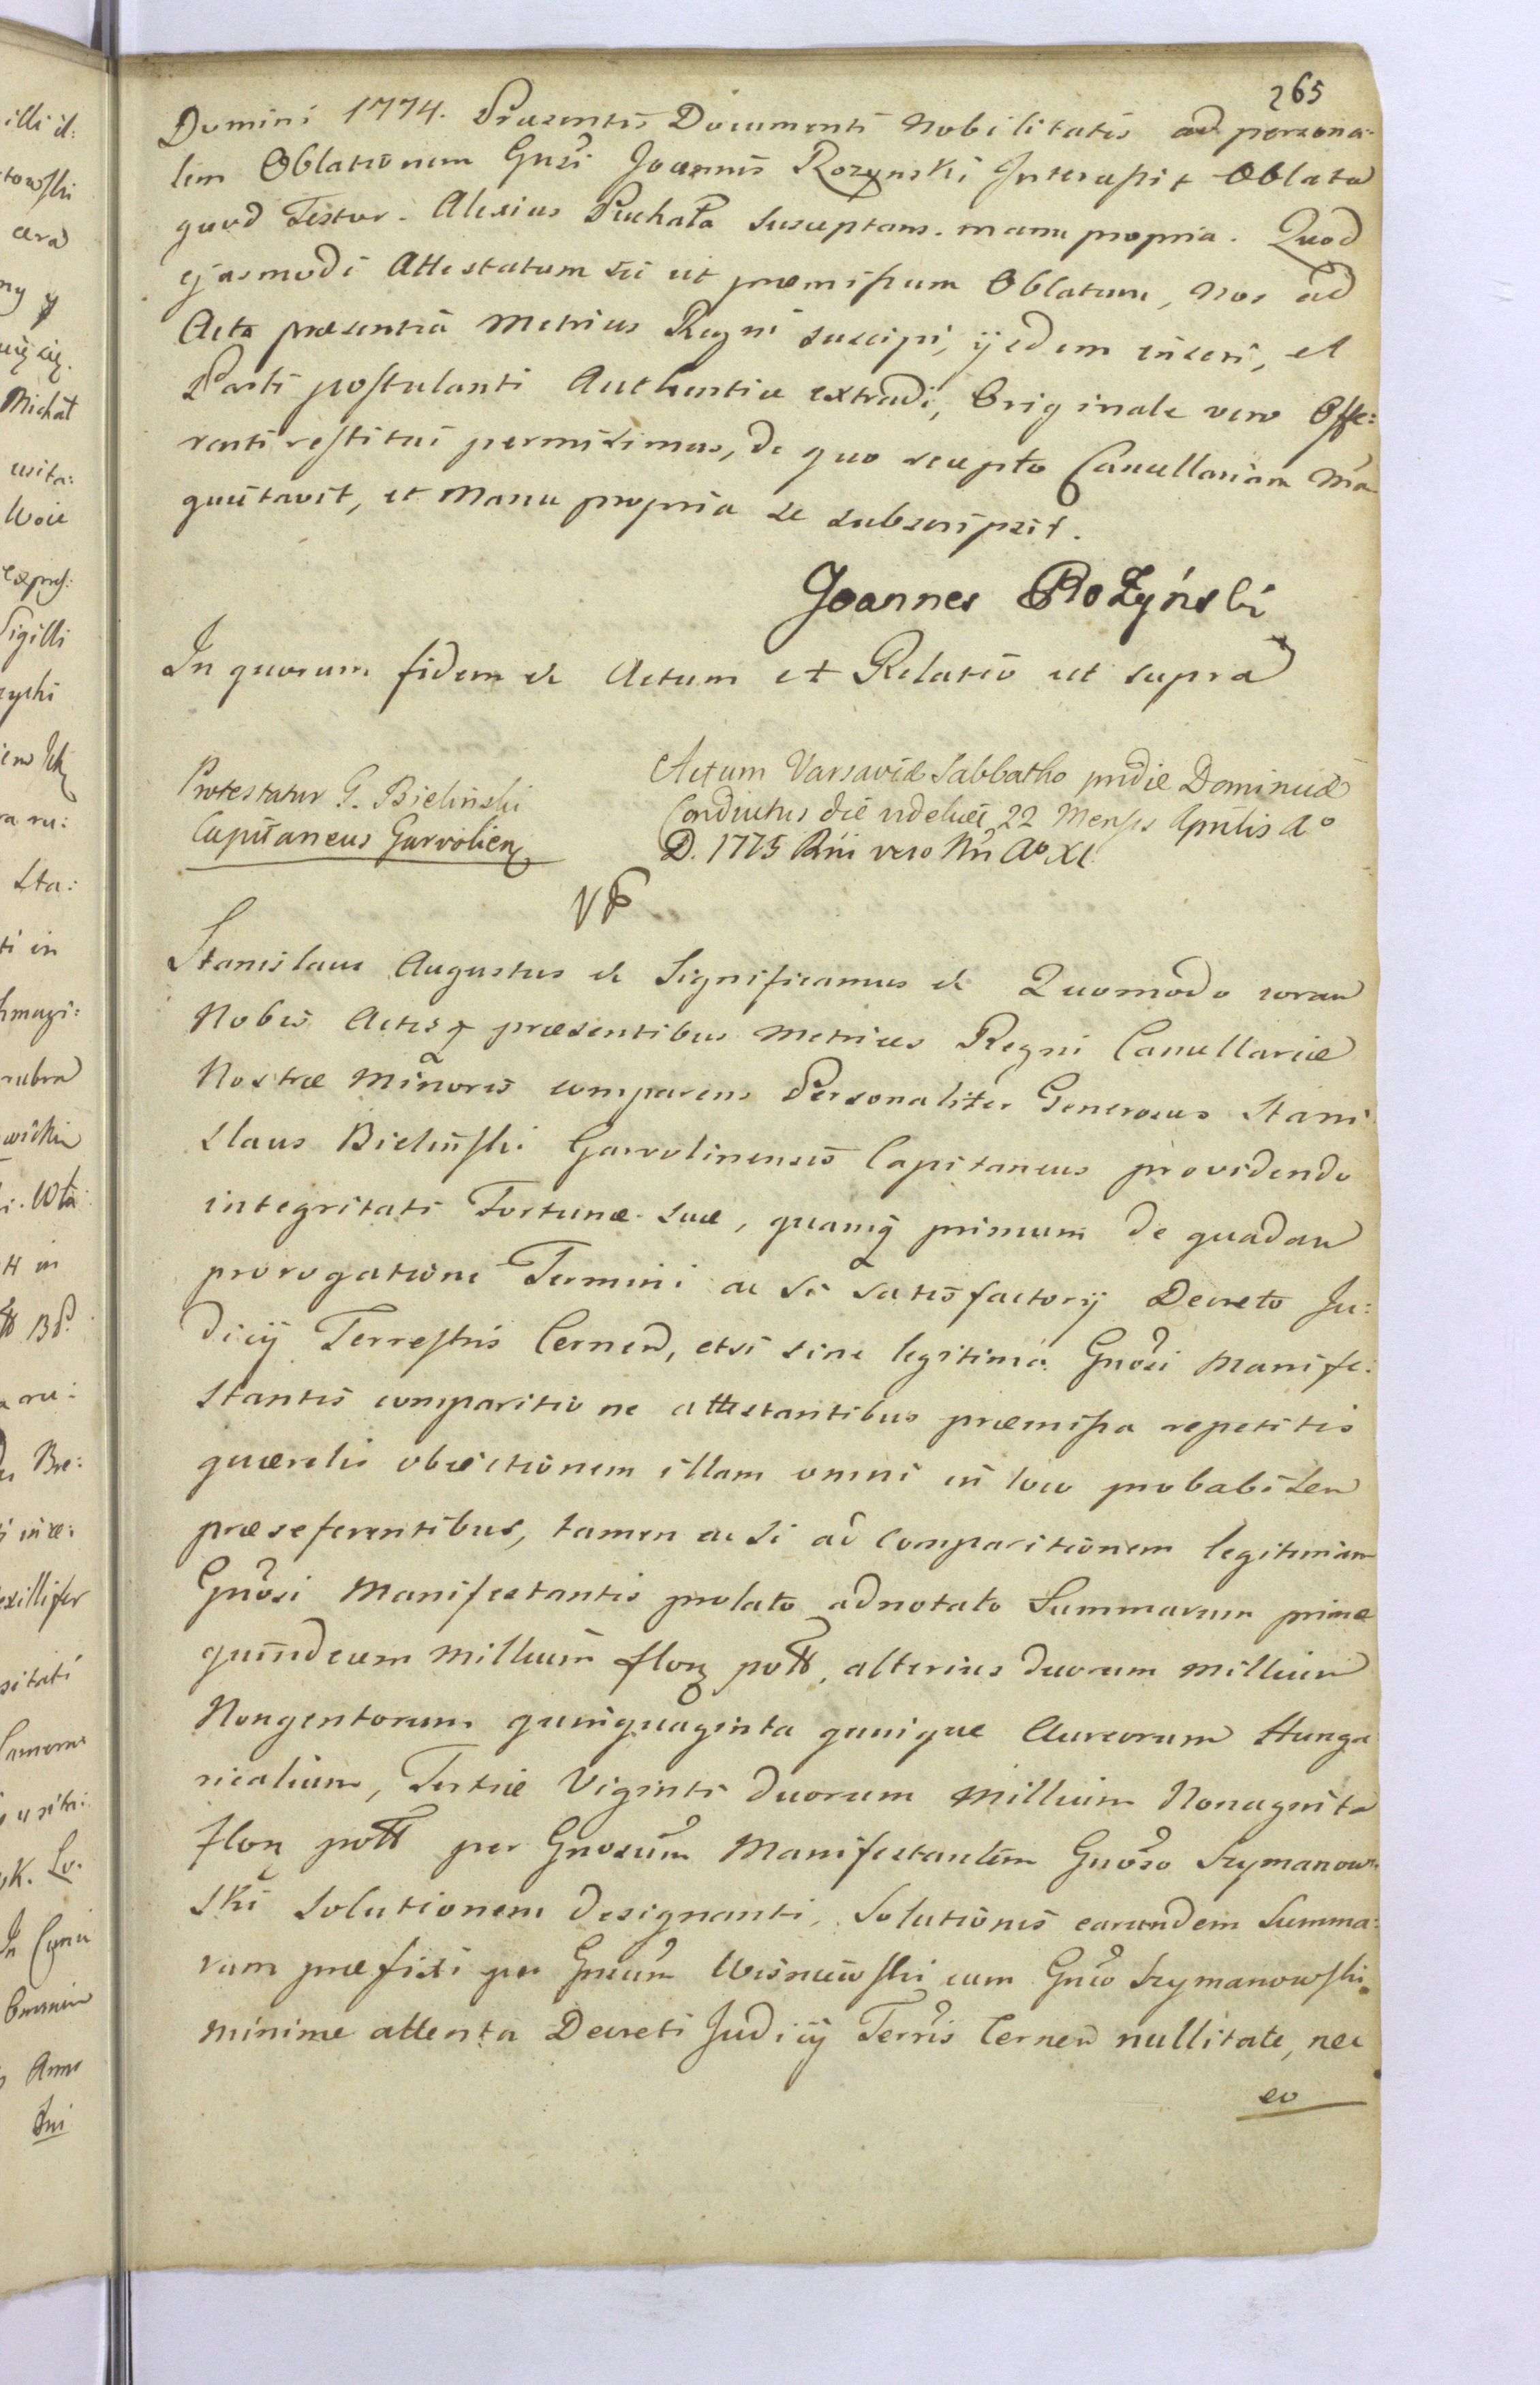 265
Domini 1774. Præsentis Documenti Nobilitatis ad persona-
lem Oblationem Gnsi Joannis Rozynski Intercessit Oblata
quod Testor. Alexius Puchała susceptans. manu propria. Quod
ejasmodi Attestatum sic ut præmissum Oblatum, Nos ad
Acta præsentia Metrices Regni suscipi, ijsdem inseri, et
Parti postulanti Authentice extradi, Originale vero Offe:
renti restitui permisimus, de quo recepto Cancellariam
quietavit, et Manu propria se subscripsit.
Joannes Rożyński
In quorum fidem &c Actum et Relatio ut supra
Protestatur G. Bielinski
Capitaneus Garvolien
Actum Varsaviæ Sabbatho pridie Dominicæ
Conductus die videlicet 22 Mensis Aprilis Ao
D. 1775 Rni vero Nri Ao XI
Stanislaus Augustus &c Significamus &c Quomodo coram
Nobis Actisq præsentibus Metrices Regni Cancellariæ
Nostræ Minoris comparens Personaliter Generosus Stani
slaus Bielinski Garvolinensis Capitaneus providendo
integritati Fortunæ suæ, quamq primum de quadam
prorogatione Termini ac si satisfactorij Decreto Ju:
dicij Terrestris Cernen, etsi sine legitima Gnosi Manife:
stantis comparitione attestantibus præmissa repetitis
quærelis obiectionem illam omni in loco probabilem
præseferentibus, tamen ac si ad comparitionem legitimam
Gnosi Manifestantis prolato adnotato Summarum primæ
quindecim millium flon poll, alterius duorum millium
Nongentorum quinquaginta quinque Aureorum Hunga
ricalium, Tertiæ Viginti duorum Millium Nonaginta
flon poll per Gnosum Manifestantem Gnoso Szymanow:
ski solutionem designanti, solutionis earundem Summa:
rum præfixi per Gneum Wisniewski cum Gnso Szymanowski
minime attenta Decreti Judicij Terris Cernen nullitate, nec
eo